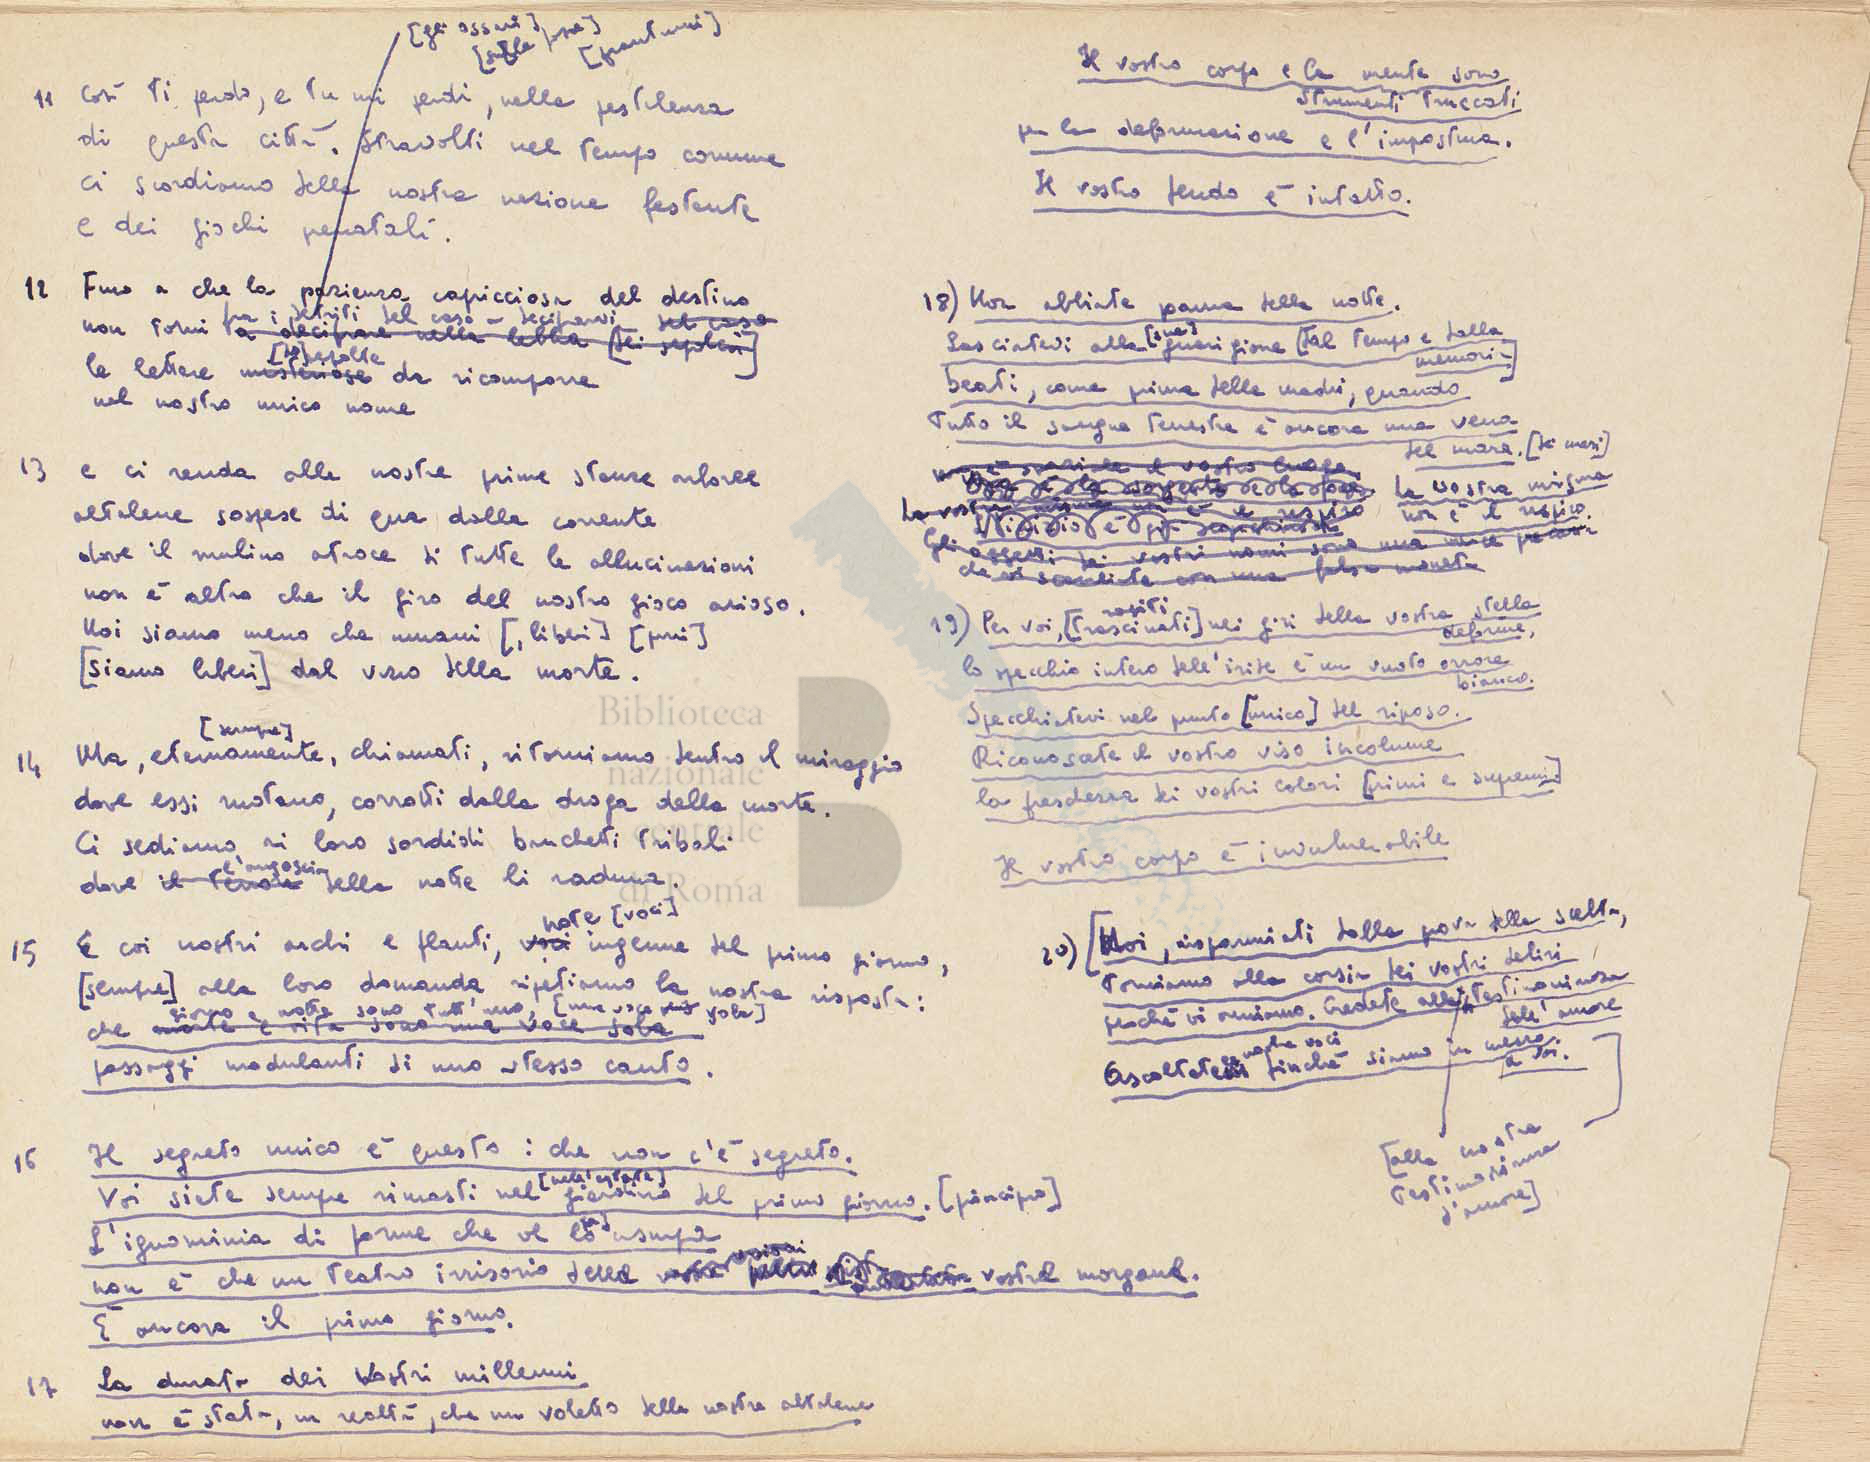 [gli ossari]
[sulle fosse] [frantumi]
11 Così ti perdo, e tu mi perdi, nella pestilenza
di questa città. Stravolti nel tempo comune
ci scordiamo della nostra nazione festante
e dei giochi prenatali.
12 Fino a che la pazienza capricciosa del destino
fra i detriti del caso – decifrarvi
non torni a decifrare nella sabbia [dei sepolcri] del caso
[di]sepolte
le lettere misteriose da ricomporre
nel nostro unico nome
13 e ci renda alle nostre prime stanze arboree
altalene sospese di qua dalla corrente
dove il mulino atroce di tutte le allucinazioni
non è altro che il giro del nostro gioco arioso.
Noi siamo meno che umani [, liberi] [puri]
[siamo liberi] dal vizio della morte.
[sempre]
14 Ma, eternamente, chiamati, ritorniamo dentro il miraggio
dove essi ruotano, corrotti dalla droga della morte.
Ci sediamo ai loro sordidi banchetti tribali
l'angoscia
dove il terrore della notte li raduna.
note [voci]
15 E coi nostri archi e flauti, voci ingenue del primo giorno,
[sempre] alla loro domanda ripetiamo la nostra risposta:
giorno e notte sono tutt'uno, [una voce sola]
che morte e vita sono una voce sola
passaggi modulanti di uno stesso canto.
16 Il segreto unico è questo: che non c'è segreto.
[nell'estate]
Voi siete sempre rimasti nel giardino del primo giorno. [principio]
L'ignominia di forme che ve lo usurpa
non è che un teatro irrisorio delle vostre morgane.
È ancora il primo giorno.
17 La durata dei vostri millenni
non è stata, in realtà, che un voletto delle nostre altalene
Il vostro corpo e la mente sono
strumenti truccati
per la deformazione e l'impostura.
Il vostro fondo è intatto.
18) Non abbiate paura della notte.
[sua]
Lasciatevi alla guarigione [dal tempo e dalla
memoria]
beati, come prima delle madri, quando
tutto il sangue terrestre è ancora una vena
del mare. [dei mari]
La vostra misura
non è il respiro.
La vostra misura non è il respiro
Gli oggetti dei vostri nomi sono una merce
che vi scambiate con una falsa moneta
rapiti
19) Per voi, [trascinati] nei giri della vostra stella
deforme,
lo specchio intero dell'iride è un vuoto orrore
bianco.
Specchiatevi nel punto [unico] del riposo.
Riconoscete il vostro viso incolume
la freschezza dei vostri colori [primi e supremi]
Il vostro corpo è invulnerabile
20) [Noi, risparmiati dalla prova della scelta,
torniamo alla corsia dei vostri deliri
perché vi amiamo. Credete alla testimonianza
dell'amore
nostre voci
Ascoltate finché siamo in mezzo
a voi.
[alla nostra
testimonianza
d'amore]
Biblioteca
nazionale
centrale
di Roma